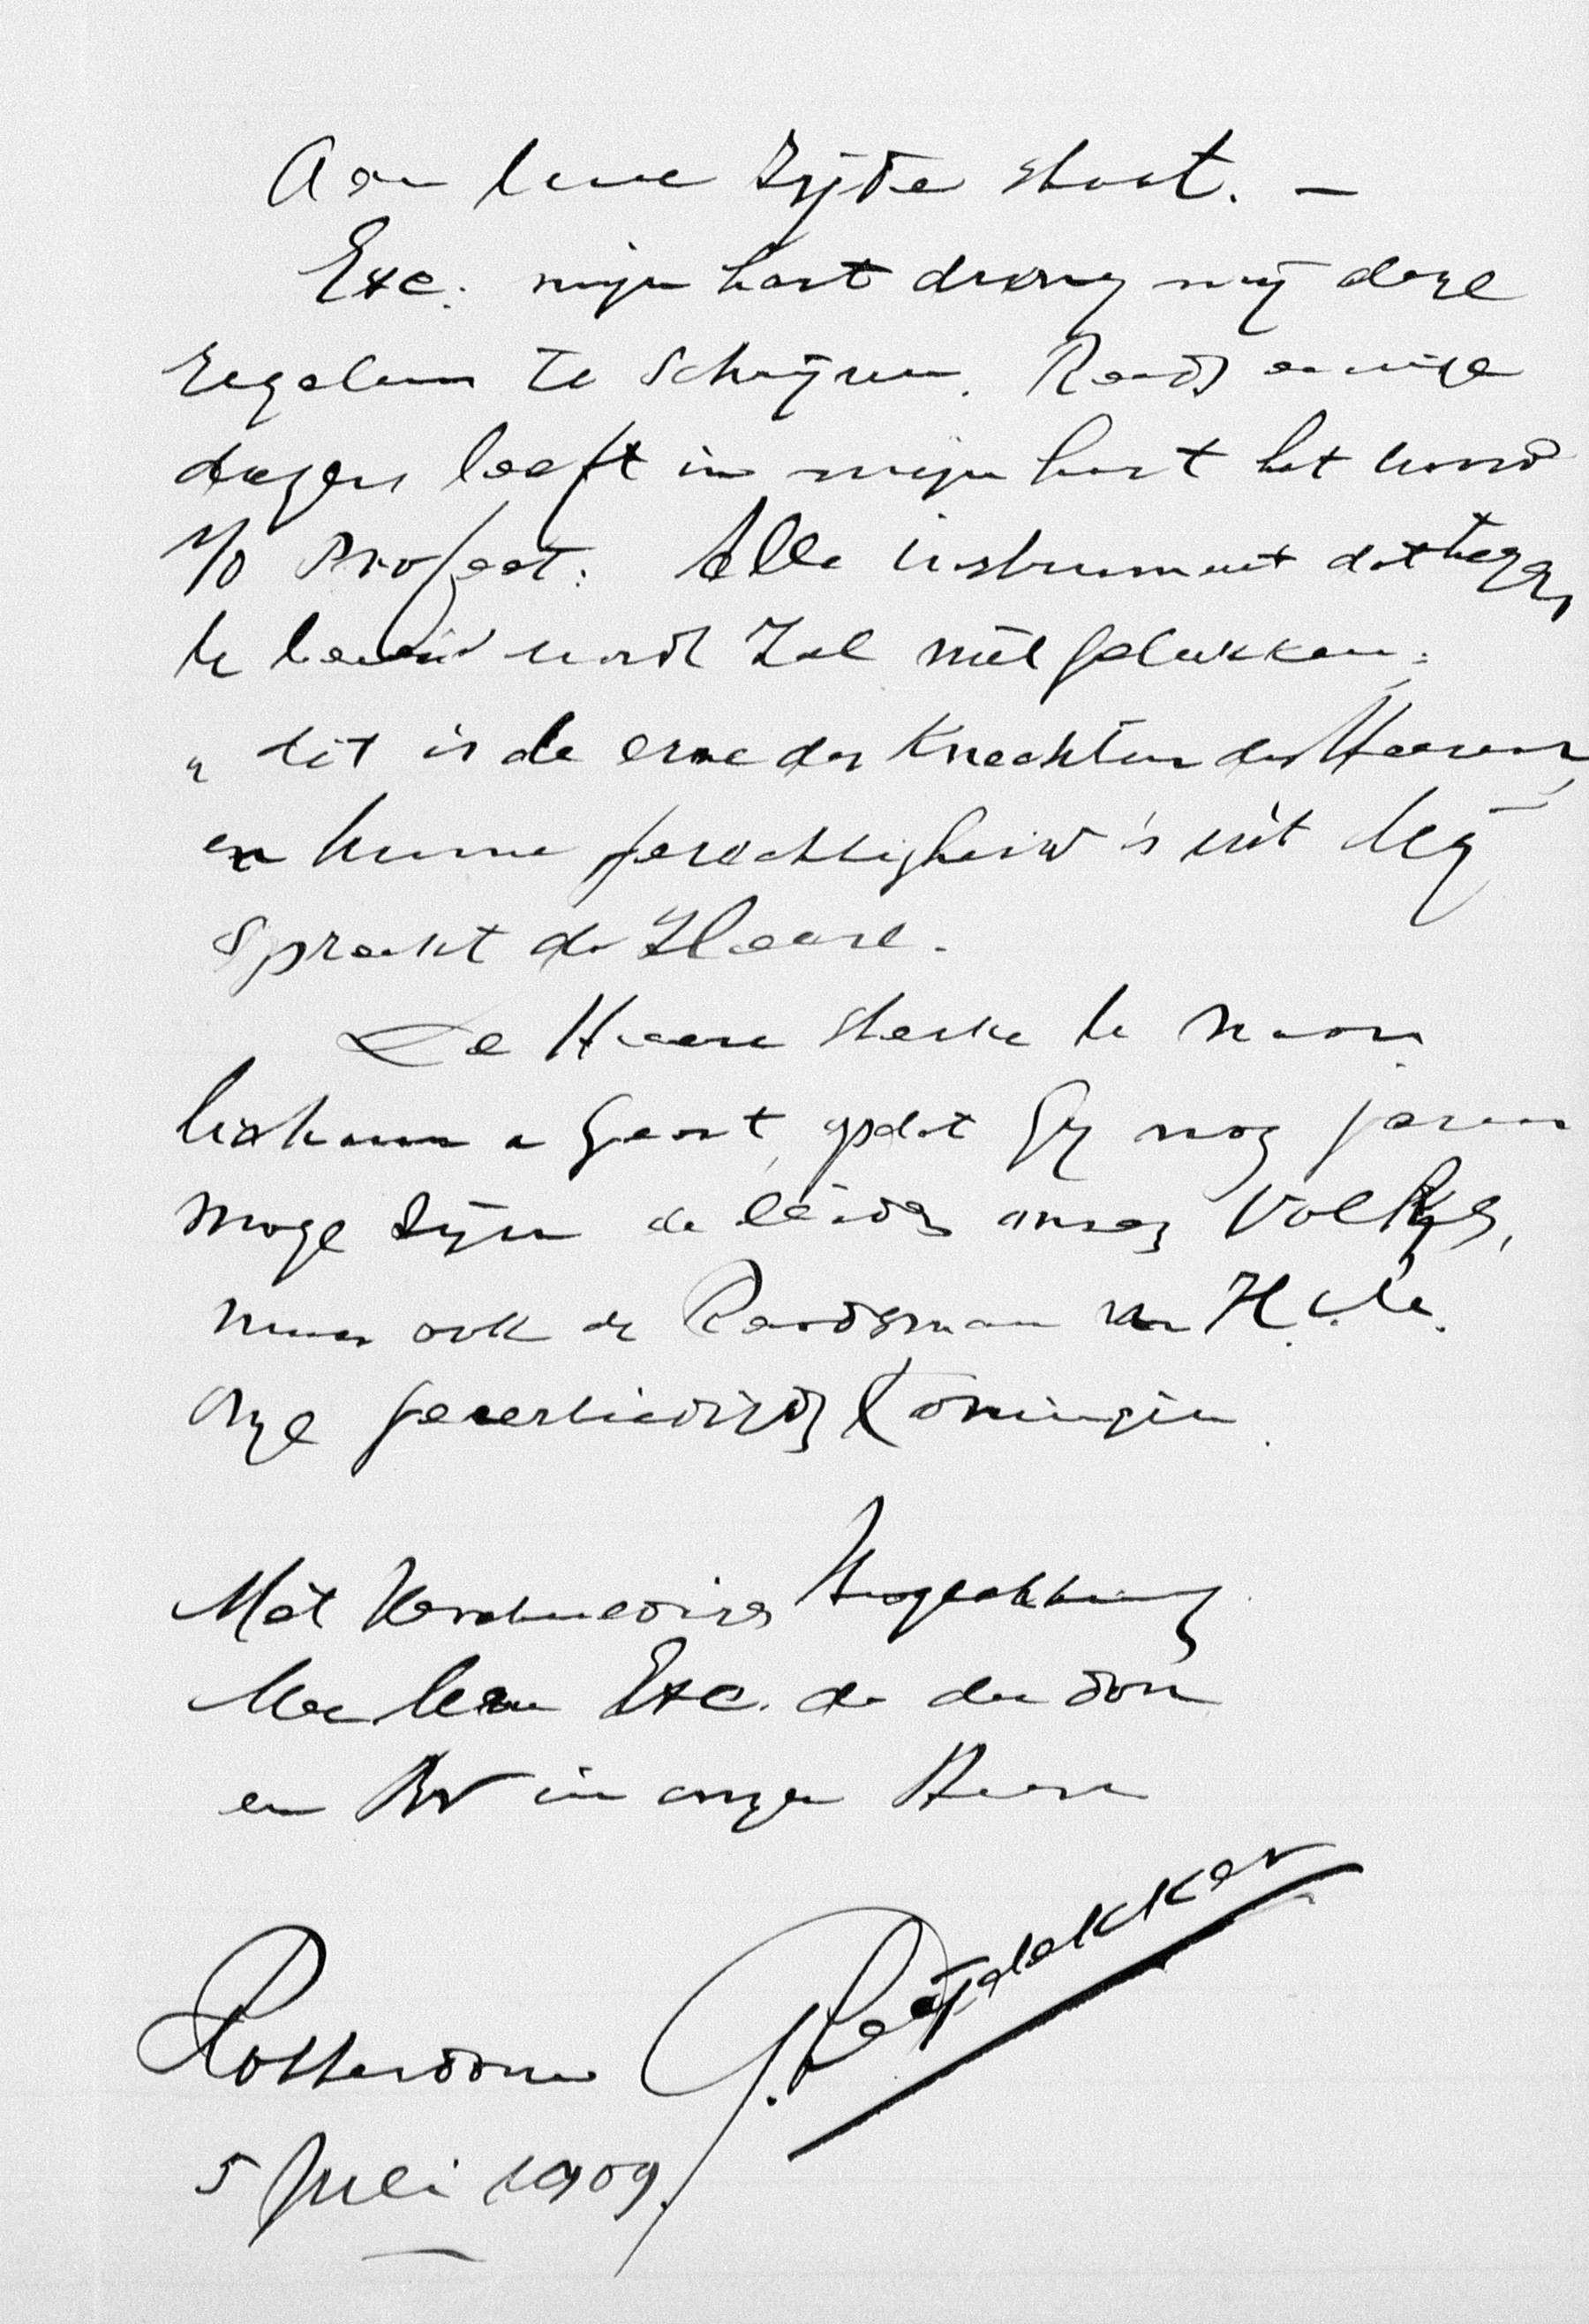 Aan Uwe Zijde staat. –
Exc. mijn hart drong mij deze
regelen te schrijven. Reeds eenige
dagen leeft in mijn hart het woord
v/d Profeet: Alle instrument dat tegen
U bereid wordt zal niet gelukken:
„dit is de erve der Knechten des Heeren,
en hunne gerechtigheid is uit Mij
Spreekt de Heere.
De Heere sterke U naar
lichaam en Geest, opdat Gij nog jaren
moge zijn de leider onzes Volkes,
maar ook de Raadsman van H.M.
Onze geëerbiedigde Koningin.
Met Verschuldigde Hoogachting
Van Uwe Exc. de dw dnr
en Br in onzen Heere
J. Reijdekker
Rotterdam
5 Juli 1909.